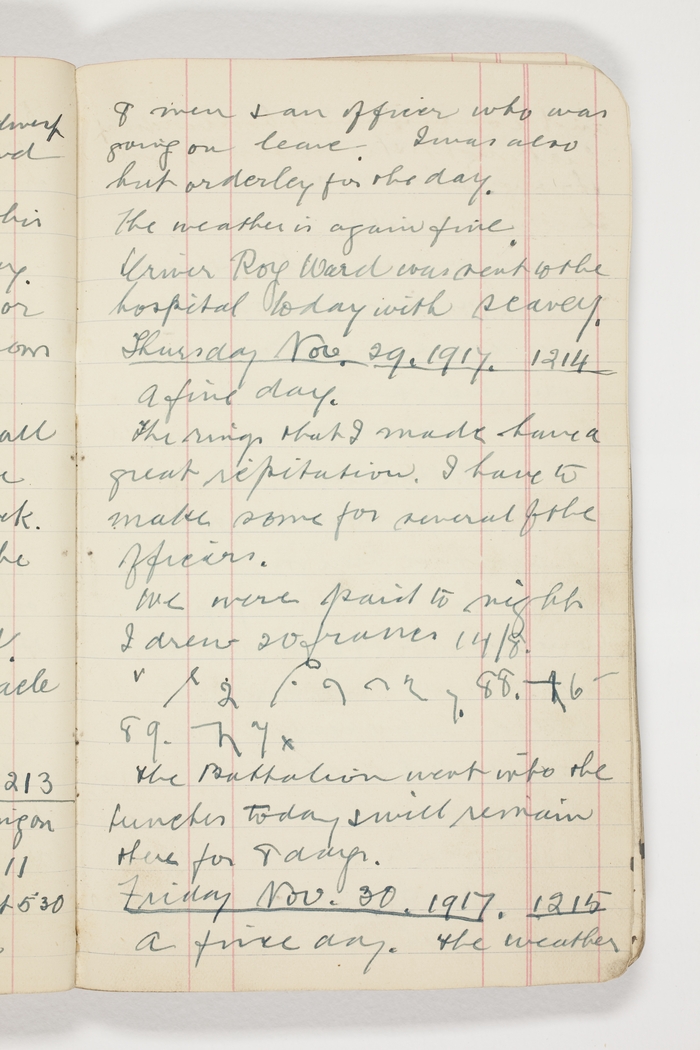 8 men & an officer who was
going on leave. I was also
hut orderley for the day.
The weather is again fine.
Driver Roy Ward was sent to the
hospital today with scavey.
Thursday Nov. 29. 1917. 1214
A fine day.
The rings that I made have a
great repitation. I have to
make some for several of the
officers.
We were paid to night
I drew 20 francs 14/8.
88.
89.
The Battalion went into the
tunches today & will remain
there for 8 days.
Friday Nov. 30. 1917. 1215
A fine day. The weather
213
11
530
all
he
acle